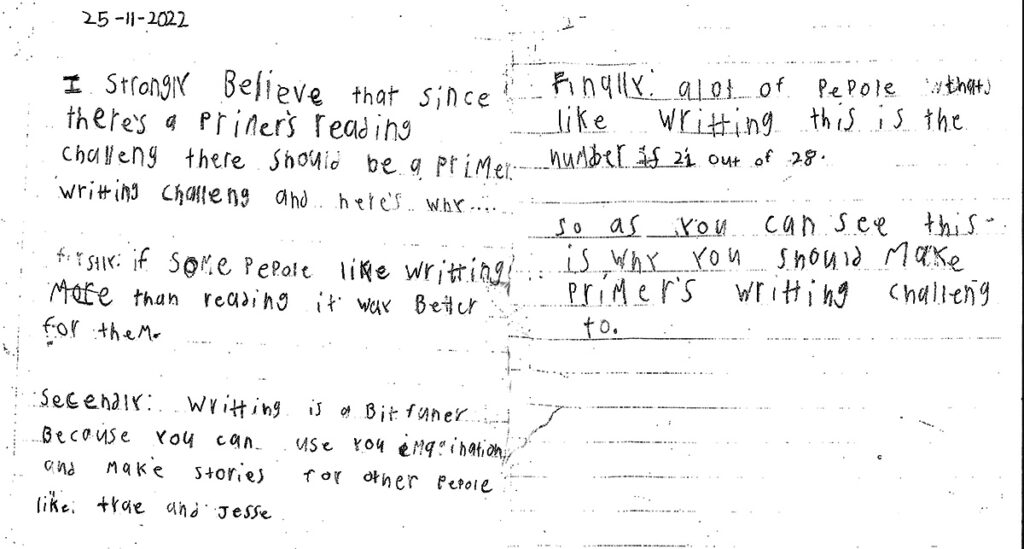 25-11-2022
I strongly Believe that since
there's a Primer's reading
challeng there should be a primer
writting challeng and here's why....
firstly: if some Pepole like writting
More than reading it way Better
for them.
Secendly: writting is a Bit funer
Because you can use you emagination
and make stories for other Pepole
like: trae and Jesse
Finally: alot of Pepole thats
like writting this is the
number is 21 out of 28.
so as you can see this
is why you should Make
Primer's writting challeng
to.